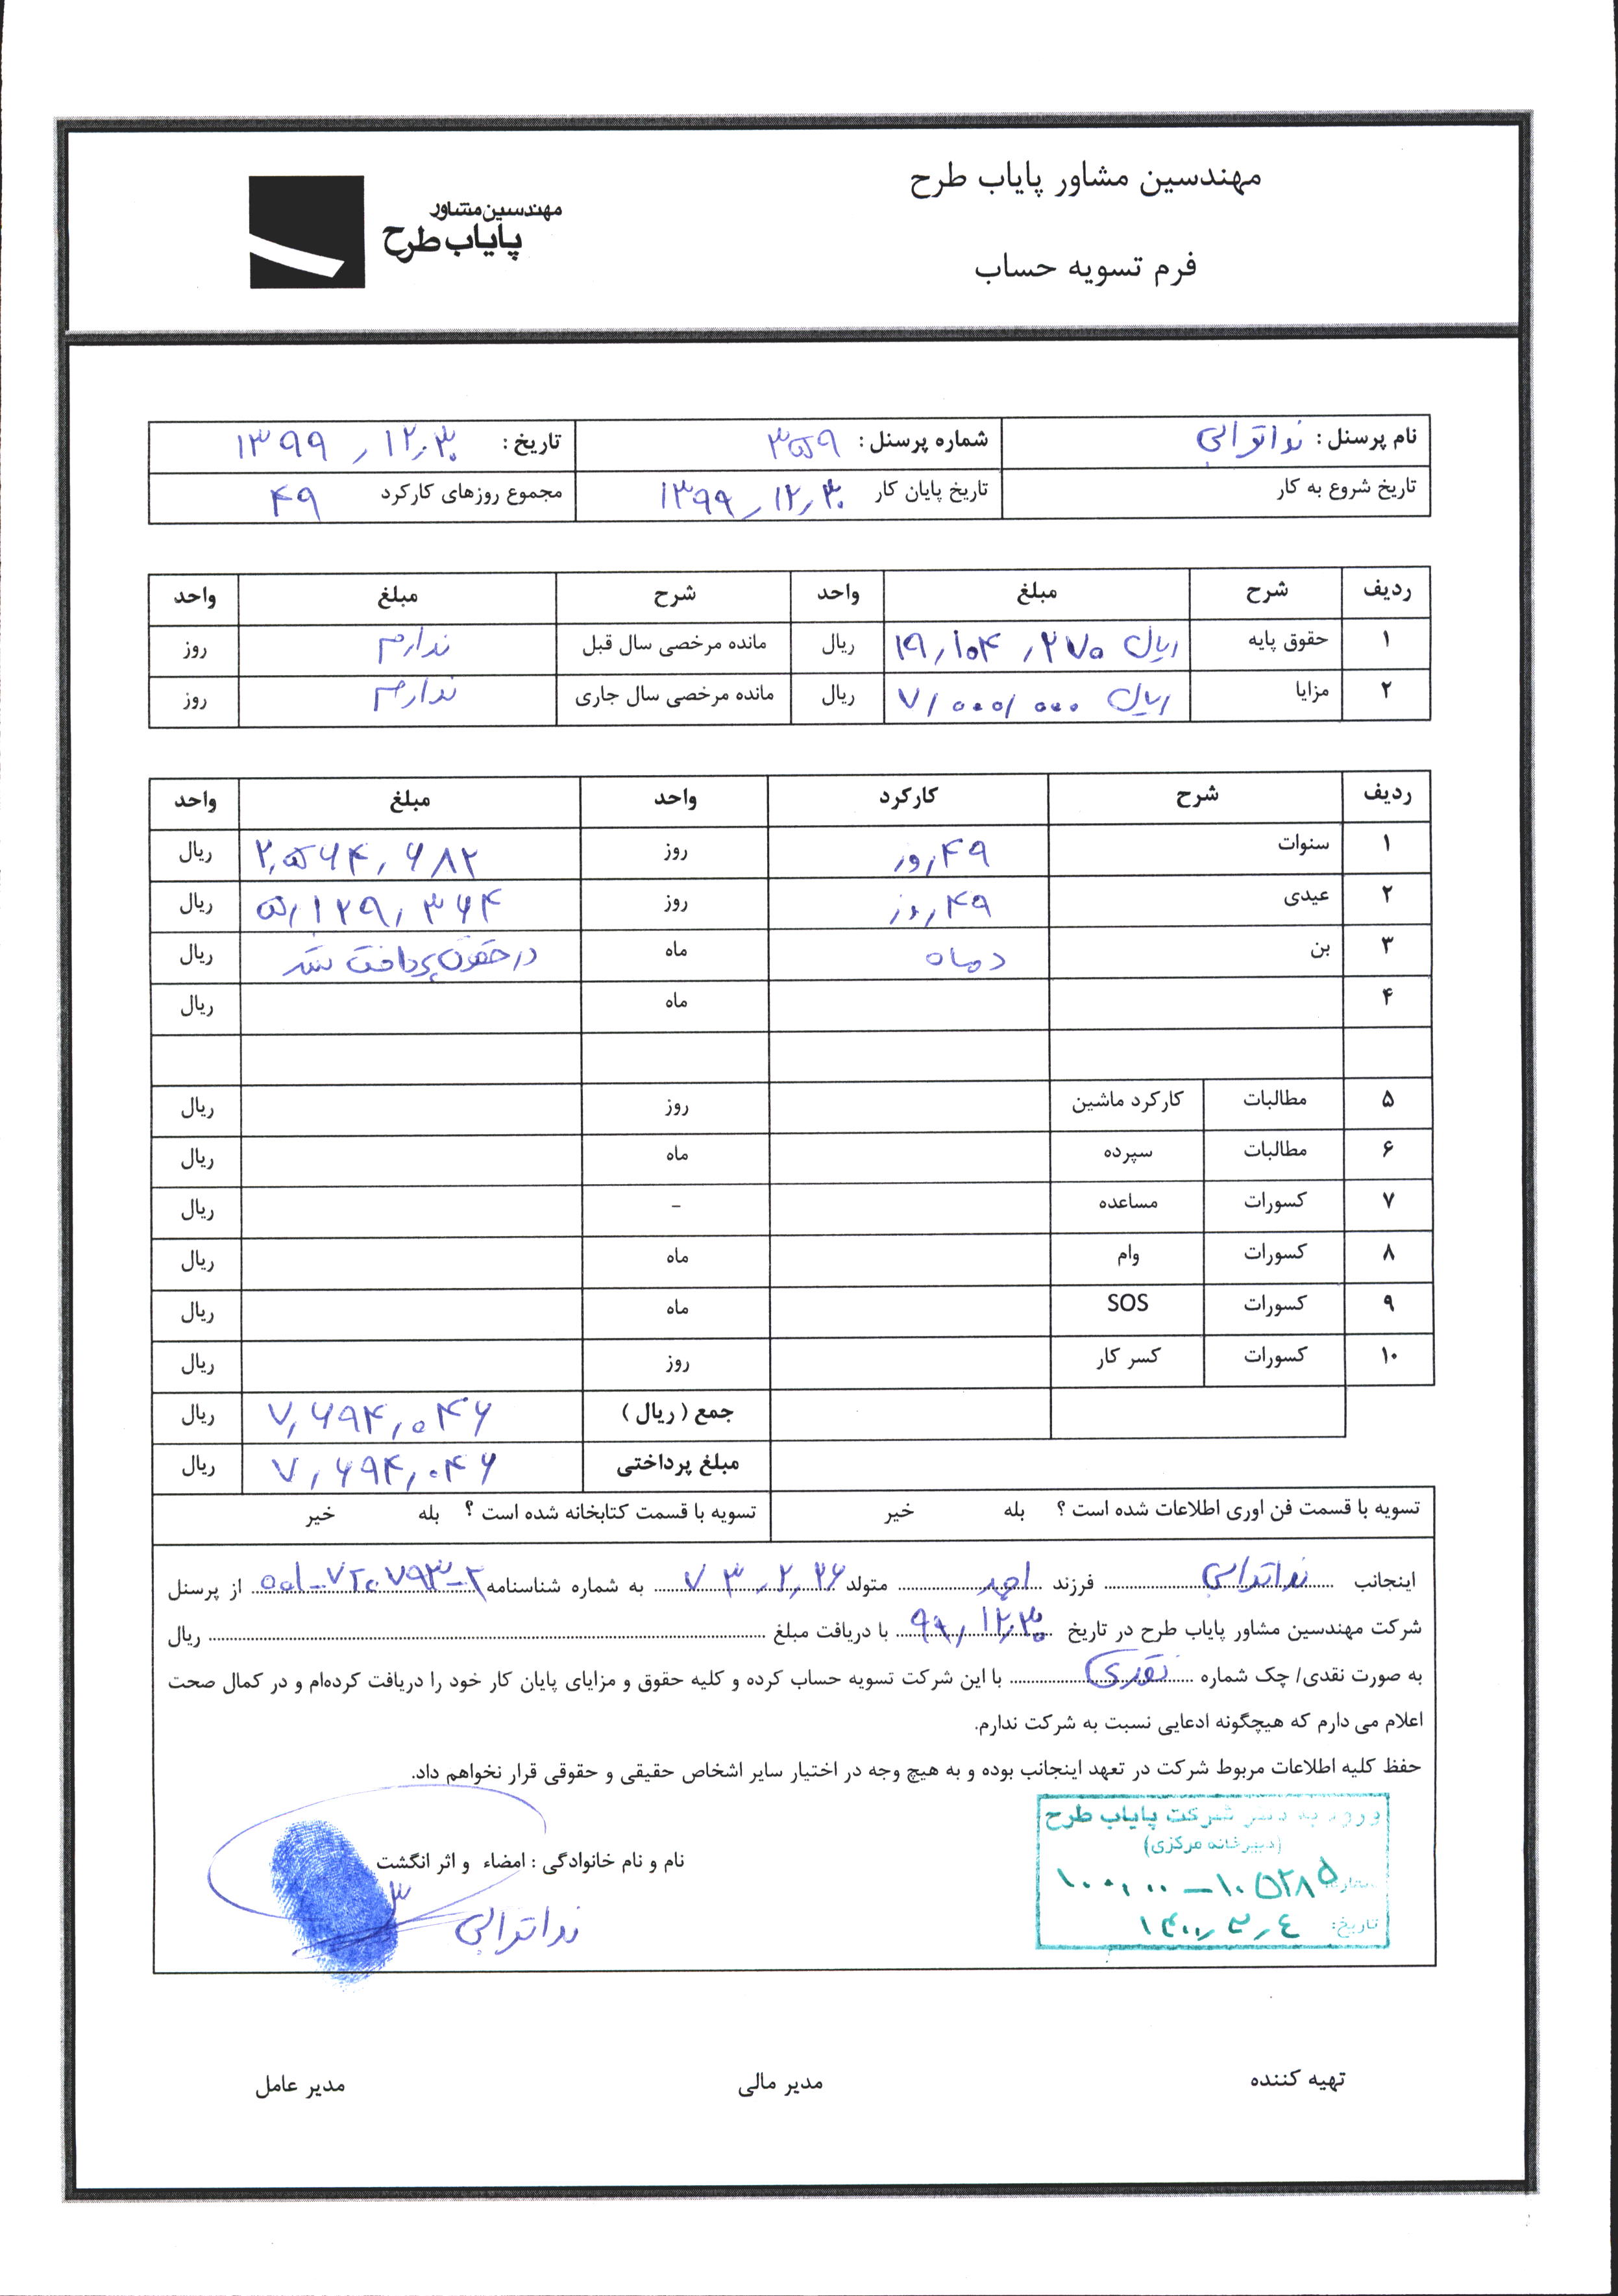 مهندسین مشاور پایاب طرح
مهندسین مشاور
پایاب طرح
فرم تسویه حساب
نام پرسنل : ندا ترابی شماره پرسنل : ۳۵۹ تاریخ : ۱۳۹۹,۱۲,۳۰
تاریخ شروع به کار تاریخ پایان کار ۱۳۹۹,۱۲,۳۰ مجموع روزهای کارکرد ۴۹
ردیف شرح مبلغ واحد شرح مبلغ واحد
۱ حقوق پایه ۱۹,۱۰۴,۲۷۰ ریال ریال مانده مرخصی سال قبل ندارم روز
۲ مزایا ۷,۰۰۰,۰۰۰ ریال ریال مانده مرخصی سال جاری ندارم روز
ردیف شرح کارکرد واحد مبلغ واحد
۱ سنوات ۴۹ روز روز ۲,۵۶۴,۶۸۲ ریال
۲ عیدی ۴۹ روز روز ۵,۱۲۹,۳۶۴ ریال
۳ بن دو ماه ماه در حقوق پرداخت شد ریال
۴ ماه ریال
۵ مطالبات کارکرد ماشین روز ریال
۶ مطالبات سپرده ماه ریال
۷ کسورات مساعده - ریال
۸ کسورات وام ماه ریال
۹ کسورات SOS ماه ریال
۱۰ کسورات کسر کار روز ریال
جمع ( ریال ) ۷,۶۹۴,۰۴۶ ریال
مبلغ پرداختی ۷,۶۹۴,۰۴۶ ریال
تسویه با قسمت فن اوری اطلاعات شده است ؟ بله خیر تسویه با قسمت کتابخانه شده است ؟ بله خیر
اینجانب ندا ترابی فرزند احمد متولد ۷۳,۲,۲۶ به شماره شناسنامه از پرسنل
شرکت مهندسین مشاور پایاب طرح در تاریخ ۹۹,۱۲,۳۰ با دریافت مبلغ ریال
به صورت نقدی/ چک شماره نقدی با این شرکت تسویه حساب کرده و کلیه حقوق و مزایای پایان کار خود را دریافت کرده‌ام و در کمال صحت
اعلام می دارم که هیچگونه ادعایی نسبت به شرکت ندارم.
حفظ کلیه اطلاعات مربوط شرکت در تعهد اینجانب بوده و به هیچ وجه در اختیار سایر اشخاص حقیقی و حقوقی قرار نخواهم داد.
ورود به دفتر شرکت پایاب طرح
(دبیرخانه مرکزی)
تاریخ: ۱۴۰۰,۳,۴
نام و نام خانوادگی : امضاء و اثر انگشت
ندا ترابی
تهیه کننده مدیر مالی مدیر عامل